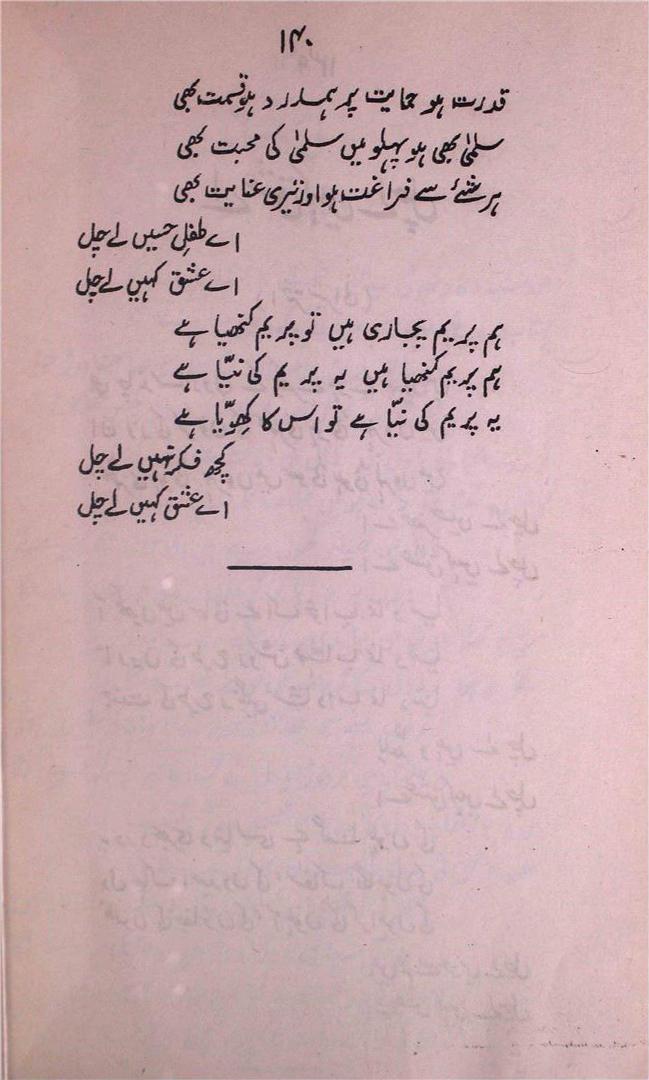 ۱۴۰
قدرت ہو حمایت پر ہمدرد ہو قسمت بھی
سلمیٰ بھی ہو پہلو میں سلمیٰ کی محبت بھی
ہر شئے سے فراغت ہو اور تیری عنایت بھی
اے طفلِ حسیں لے چل
اے عشق کہیں لے چل
ہم پریم پجاری ہیں تو پریم کنھیا ہے
ہم پریم کنھیا ہیں یہ پریم کی نیّا ہے
یہ پریم کی نیّا ہے تو اس کا کھویّا ہے
کچھ فکر نہیں لے چل
اے عشق کہیں لے چل